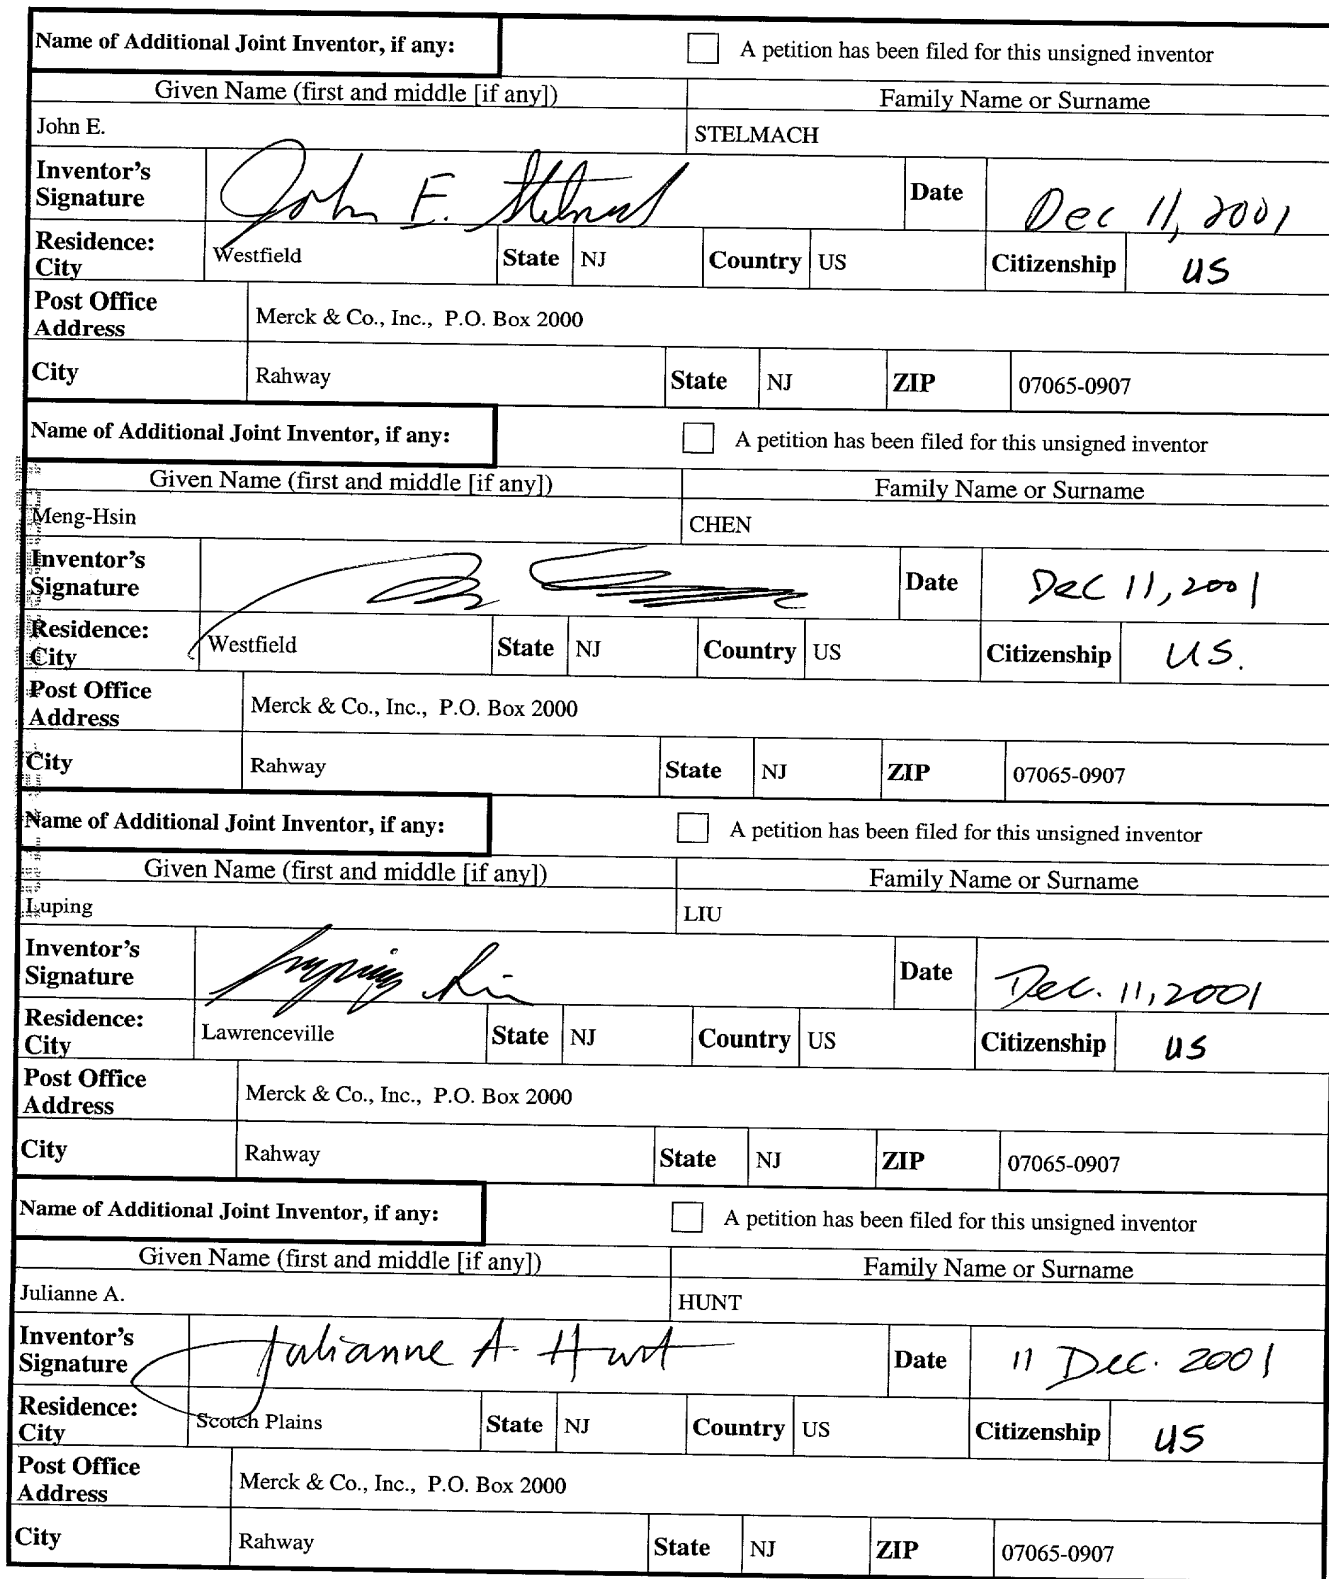 Name of Additional Joint Inventor, if any: A petition has been filed for this unsigned inventor
Given Name (first and middle [if any]) Family Name or Surname
John E. STELMACH
Inventor's Signature John E. Stelmach Date Dec 11, 2001
Residence: City Westfield State NJ Country US Citizenship US
Post Office Address Merck & Co., Inc., P.O. Box 2000
City Rahway State NJ ZIP 07065-0907
Name of Additional Joint Inventor, if any: A petition has been filed for this unsigned inventor
Given Name (first and middle [if any]) Family Name or Surname
Meng-Hsin CHEN
Inventor's Signature Date Dec 11, 2001
Residence: City Westfield State NJ Country US Citizenship U.S.
Post Office Address Merck & Co., Inc., P.O. Box 2000
City Rahway State NJ ZIP 07065-0907
Name of Additional Joint Inventor, if any: A petition has been filed for this unsigned inventor
Given Name (first and middle [if any]) Family Name or Surname
Luping LIU
Inventor's Signature Luping Liu Date Dec. 11, 2001
Residence: City Lawrenceville State NJ Country US Citizenship US
Post Office Address Merck & Co., Inc., P.O. Box 2000
City Rahway State NJ ZIP 07065-0907
Name of Additional Joint Inventor, if any: A petition has been filed for this unsigned inventor
Given Name (first and middle [if any]) Family Name or Surname
Julianne A. HUNT
Inventor's Signature Julianne A. Hunt Date 11 Dec. 2001
Residence: City Scotch Plains State NJ Country US Citizenship US
Post Office Address Merck & Co., Inc., P.O. Box 2000
City Rahway State NJ ZIP 07065-0907